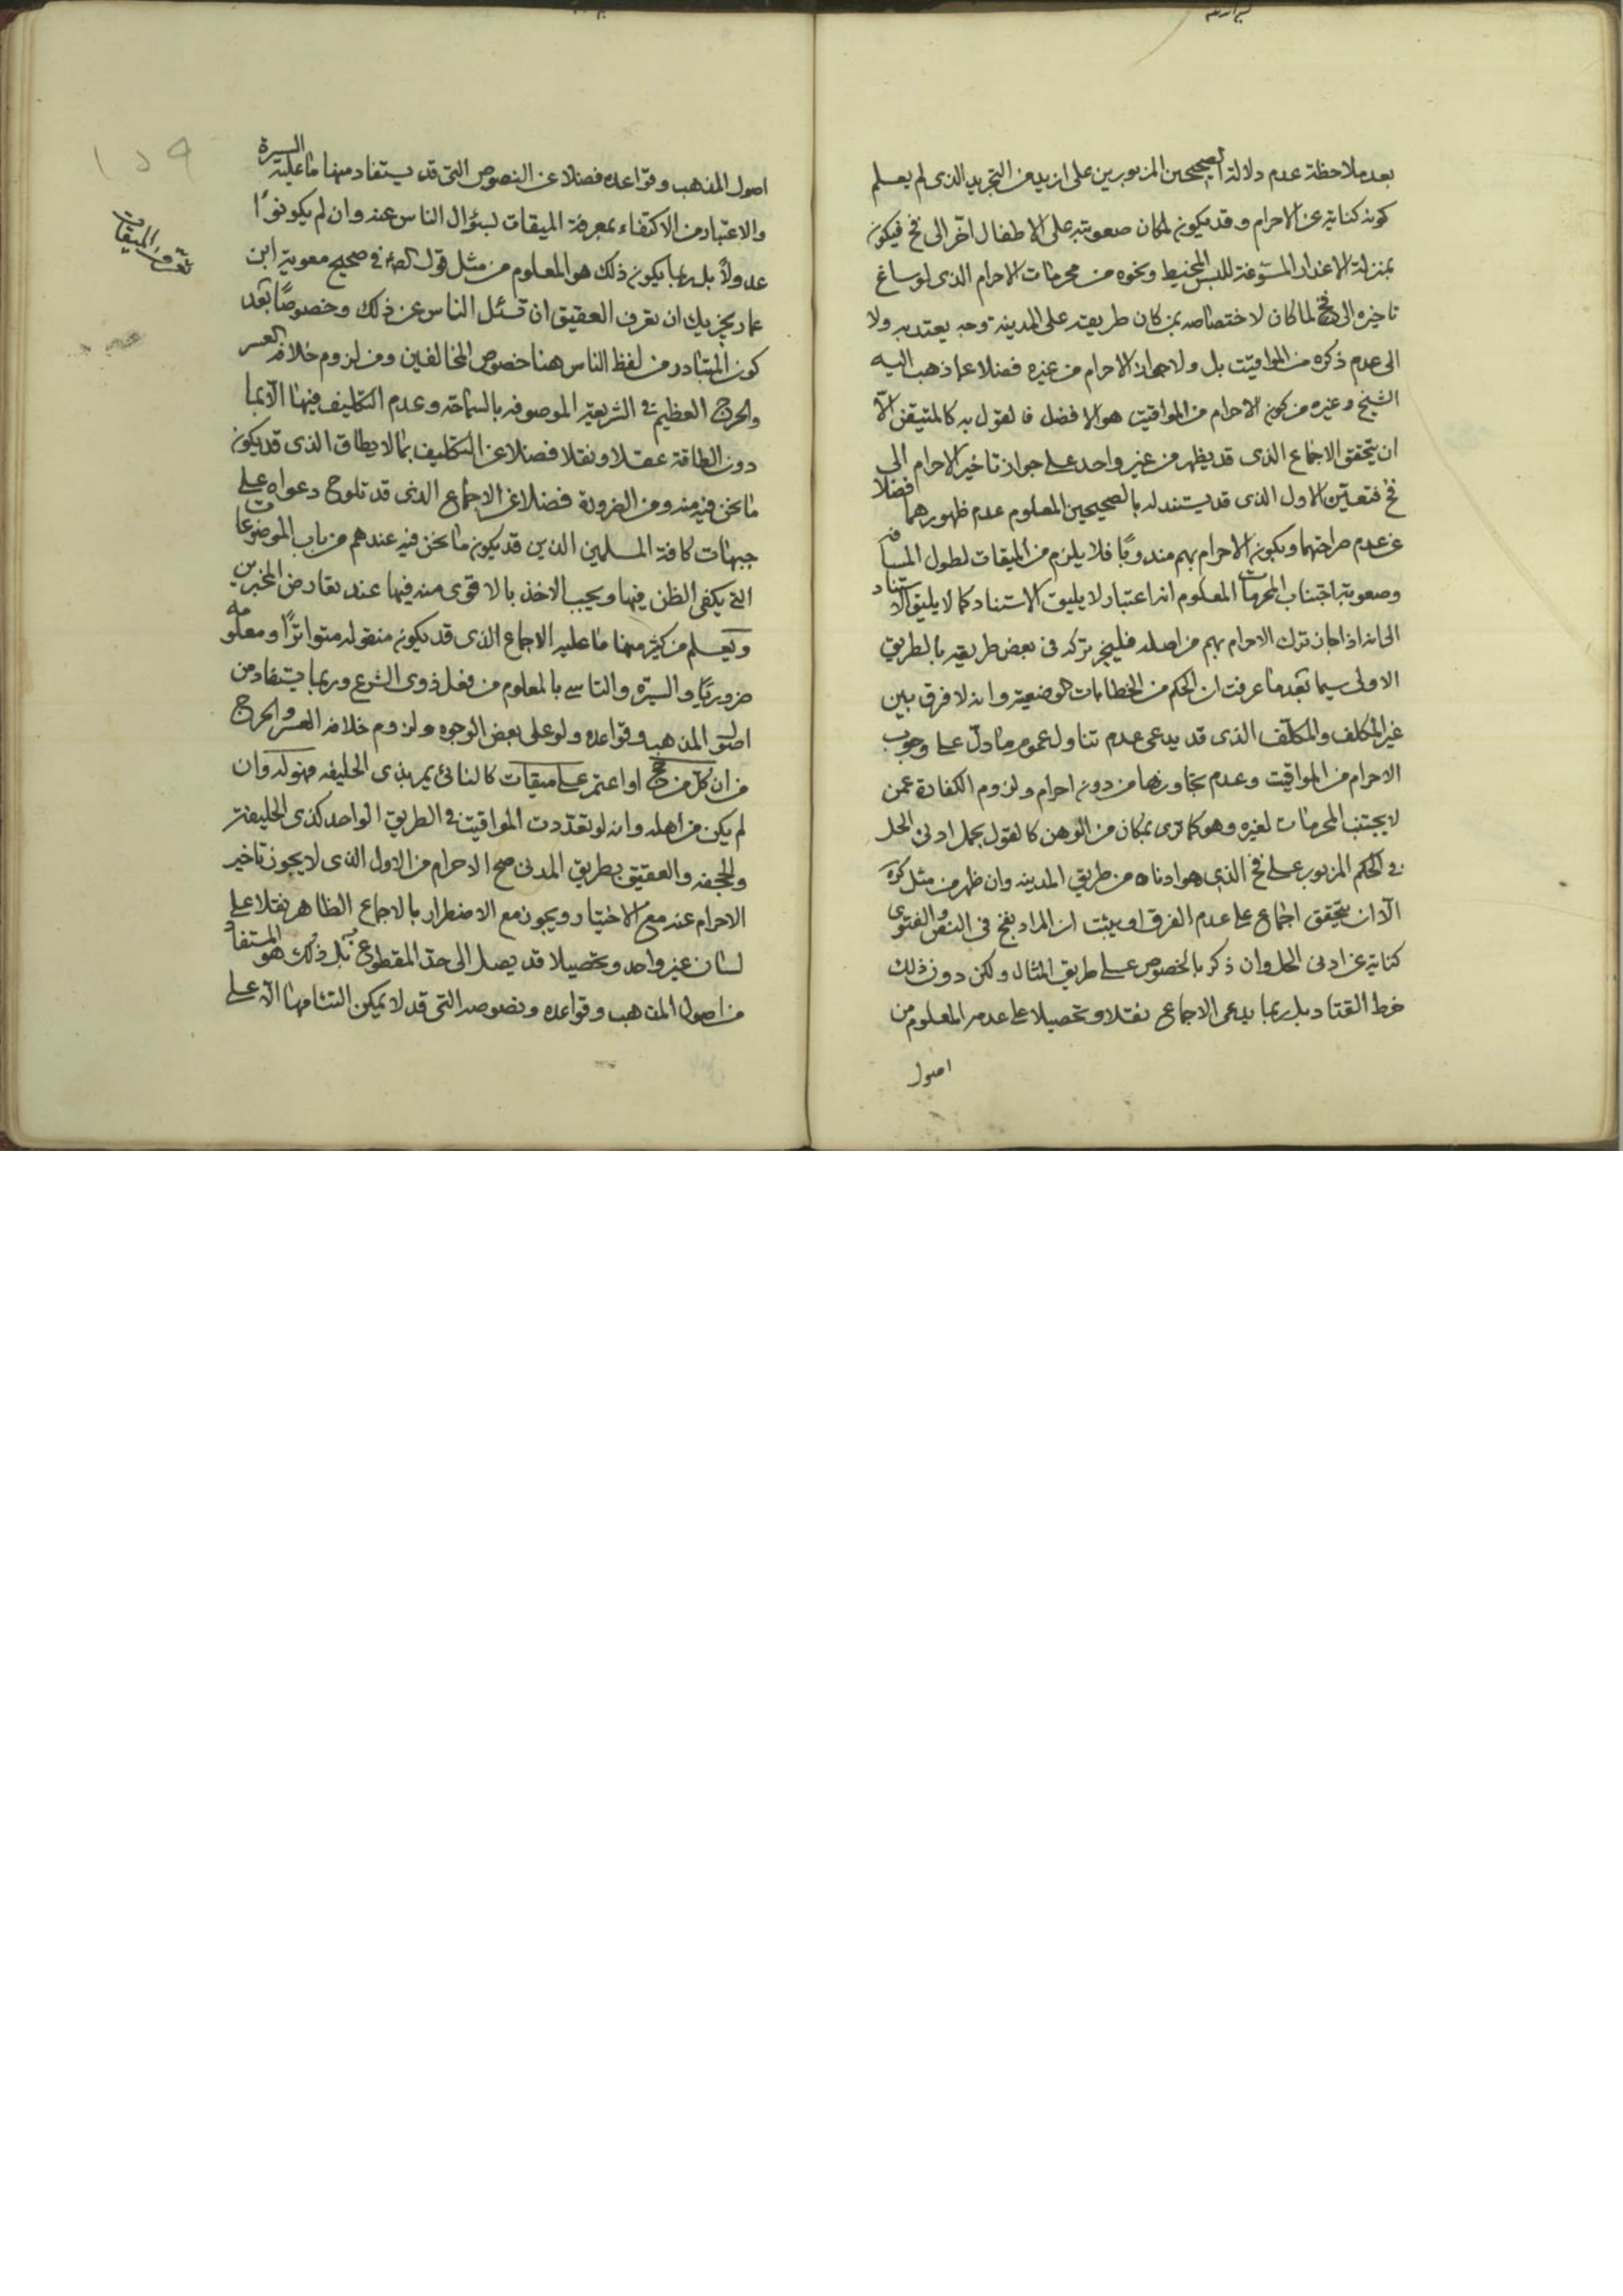 بعد ملاحظة عدم دلالة الصحيحين المزبورين على ازيد من التجريد الذى لم يعلم
كونه كناية عن الاحرام وقد يكون لمكان صعوبته على الاطفال اخّر الى فخ فيكون
بمنزلة الاعذار المسوّغة للبس المخيط ونحوه من محرمات الاحرام الذى لو ساغ
تاخيره الى فخ لما كان لاختصاصه بمن كان طريقه على المدينة وجه يعتد به ولا
الى عدم ذكره من المواقيت بل ولا جواز الاحرام من غيره فضلا عما ذهب اليه
الشيخ وغيره من كون الاحرام من المواقيت هو الافضل فالقول به كالمتيقن الّا
ان يتحقق الاجماع الذى قد يظهر من غير واحد على جواز تاخير الاحرام الى
فخ فتعيّن الاول الذى قد يستند له بالصحيحين المعلوم عدم ظهورهما فضلا
عن عدم صراحتهما وبكون الاحرام بهم مندوبًا فلا يلزم من الميقات لطول المسافة
وصعوبة اجتناب المحرمات المعلوم انه اعتبار لا يليق الاستناد كما لا يليق الاستناد
الى انه اذا جاز ترك الاحرام بهم من اصله فليجز تركه فى بعض طريقه بالطريق
الاولى سيما بعد ما عرفت ان الحكم من الخطابات الوضعية وانه لا فرق بين
غير المكلف والمكلّف الذى قد يدعى عدم تناول عموم ما دلّ على وجوب
الاحرام من المواقيت وعدم تجاوزها من دون احرام ولزوم الكفارة عمن
لا يجتنب المحرمات لغيره وهو كما ترى بمكان من الوهن كالقول بحمل ادنى الحل
فى الحكم المزبور على فخ الذى هو ادناه من طريق المدينه وان ظهر من مثل كره
الّا ان يتحقق اجماع على عدم الفرق او يثبت ان المراد بفخ فى النص والفتوى
كناية عن ادنى الحل وان ذكر بالخصوص على طريق المثال ولكن دون ذلك
خرط القتاد بل ربما يدعى الاجماع نقلا وتحصيلا على عدمه المعلوم من
اصول
١٥٩
اصول المذهب وقواعده فضلا عن النصوص التى قد يستفاد منها ما عليه السيرة
والاعتبار من الاكتفاء بمعرفة الميقات لسؤال الناس عنه وان لم يكونوا
عدولًا بل ربما يكون ذلك هو المعلوم من مثل قول الصادق فى صحيح معوية ابن
عمار يجزيك ان تعرف العقيق ان تسئل الناس عن ذلك وخصوصًا بعد
كون المتبادر من لفظ الناس هنا خصوص المخالفين ومن لزوم خلافه العسر
والحرج العظيم فى الشريعة الموصوفه بالسماحة وعدم التكليف فيها الّا بما
دون الطاقة عقلا ونقلا فضلا عن التكليف بما لا يطاق الذى قد يكون
ما نحن فيه منه ومن الضرورة فضلا عن الاجماع الذى قد تلوح دعواه على
جبهات كافة المسلمين الذين قد يكون ما نحن فيه عندهم من باب الموضوعات
التى يكفى الظن فيها ويجب الاخذ بالاقوى منه فيها عند تعارض المخبرين
ويعلم من كثير منها ما عليه الاجماع الذى قد يكون منقوله متواترًا ومعلومه
ضروريًا والسيرة والتاسى بالمعلوم من فعل ذوى الشرع وربما يستفاد من
اصول المذهب وقواعده ولو على بعض الوجوه ولزوم خلافه العسر والحرج
من ان كل من حج او اعتمر على ميقات كالنائى يمر بذى الحليفه فهو له وان
لم يكن من اهله وانه لو تعدّدت المواقيت فى الطريق الواحد كذى الحليفة
والجحفه والعقيق بطريق المدنى صح الاحرام من الاول الذى لا يجوز تاخير
الاحرام عنه مع الاختيار ويجوز مع الاضطرار بالاجماع الظاهر نقلا على
لسان غير واحد وتحصيلا قد يصل الى حدّ المقطوع به بل ذلك هو المستفاد
من اصول المذهب وقواعده ونصوصه التى قد لا يمكن التئامها الّا على
الميقات